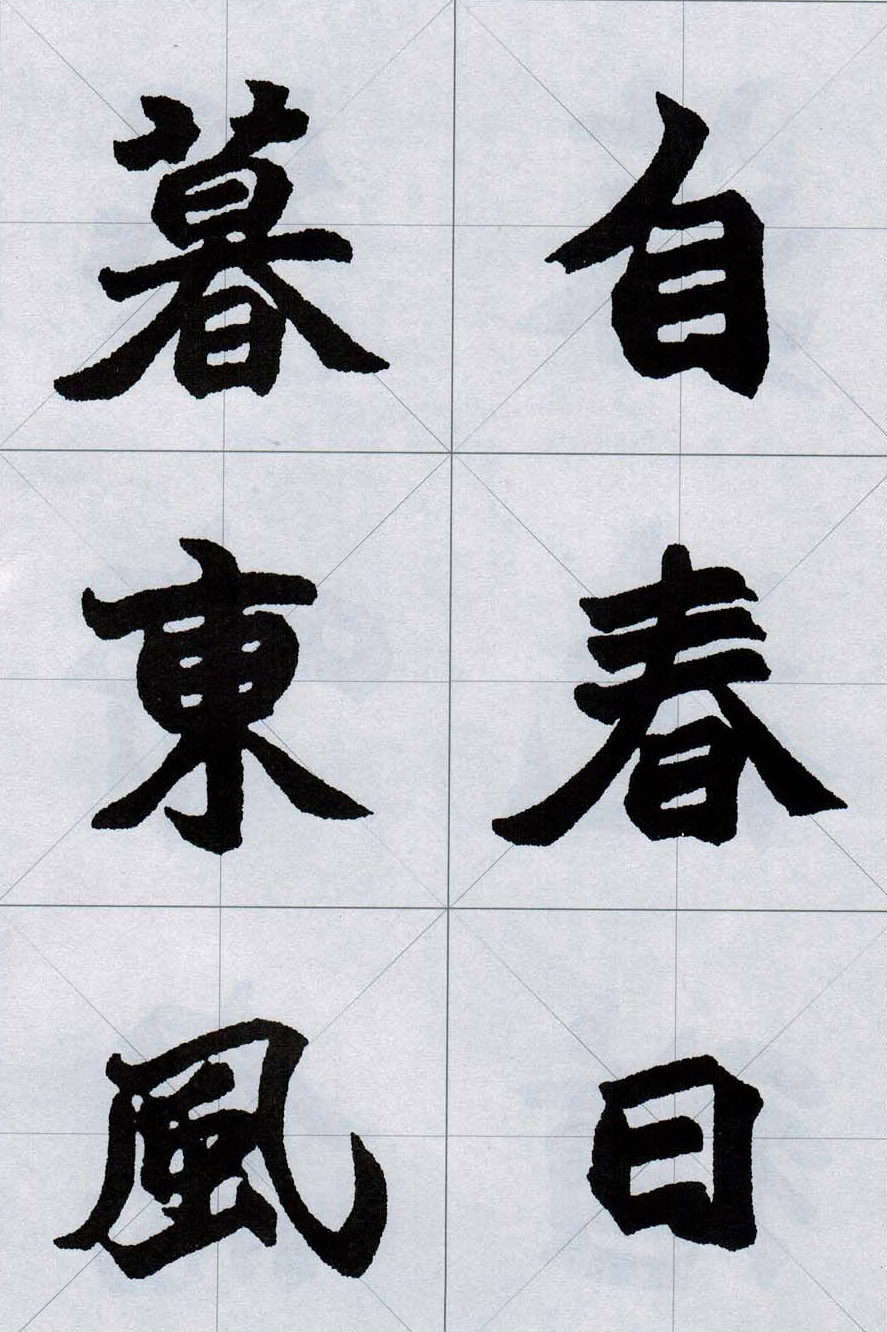 自春日
暮東風